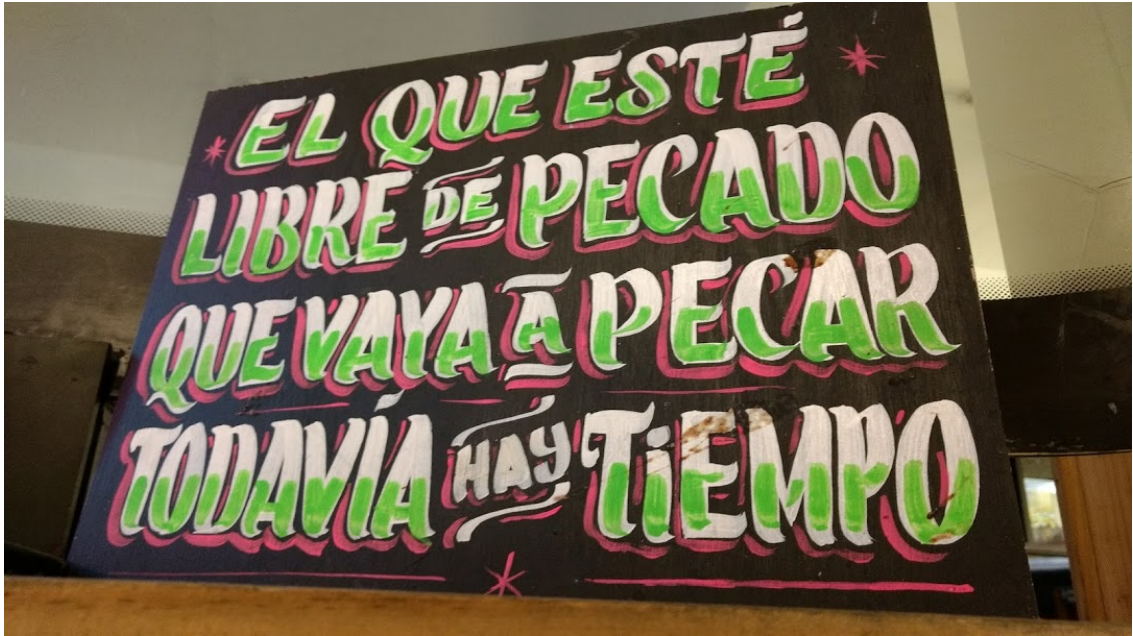 EL QUE ESTÉ
LIBRE DE PECADO
QUE VAYA A PECAR
TODAVÍA HAY TIEMPO